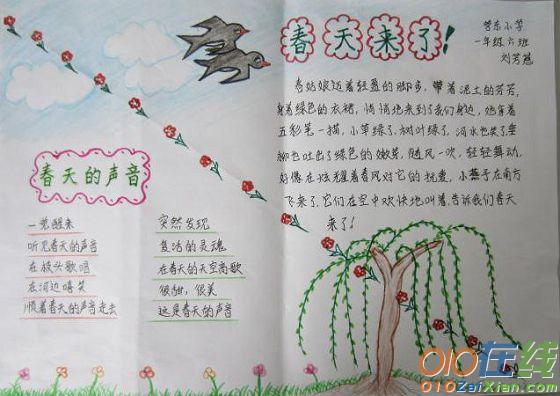 春天来了!
管东小学
一年级六班
刘芳冠
春姑娘迈着轻盈的脚步,带着泥土的芬芳,
身着绿色的衣裙,悄悄地来到了我们身边,她拿着
五彩笔一描,小草绿了,树叶绿了,河水也笑了,垂
柳也吐出了绿色的嫩芽,随风一吹,轻轻舞动,
好像在炫耀着春风对它的抚爱,小燕子在南方
飞来了,它们在空中欢快地叫着,告诉我们春天
来了!
春天的声音
一觉醒来
听见春天的声音
在枝头歌唱
在河边嘻笑
顺着春天的声音走去
突然发现
复活的灵魂
在春天的天空高歌
很甜,很美
这是春天的声音
010在线
010ZaiXian.com